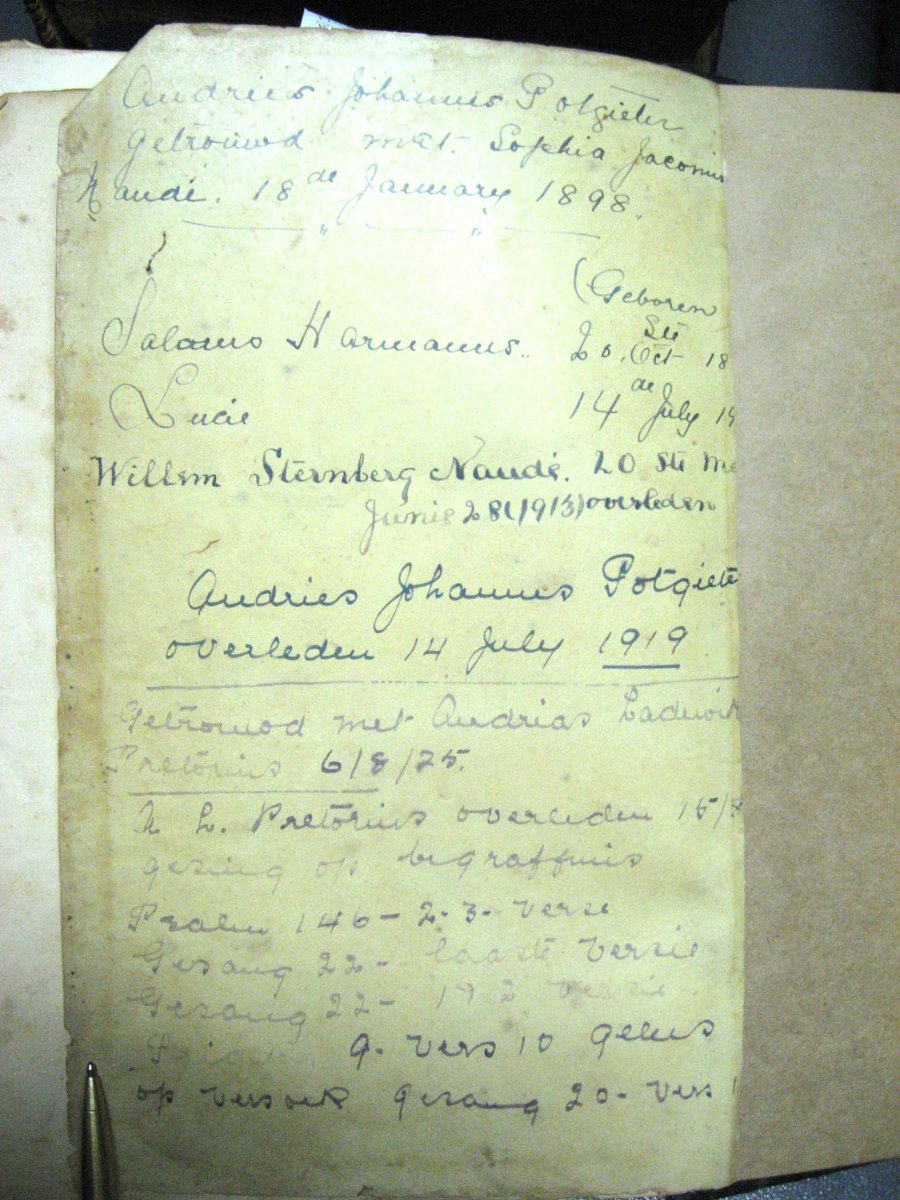 Andries Johannes Potgieter
getrouwd met. Sophia Jacomin
Naudé. 18 de January 1898.
(Geboren
Salamo Harmanus.. 20. Ste Oct 18
Lucie 14 de July 19
Willem Sternberg Naudé. 20 Ste Me
Junie 28 (1913) overleden
Andries Johannes Potgiete
overleden 14 July 1919
Getrouwd met Andrias Ladwick
Pretorius 6/8/25.
A L. Pretorius overleden 15/8
gesing op begraffinis
Psalm 146 - 2-3- verse
Gesang 22- laaste versie
Gesang 22- 1 2 versie
9- vers 10 gelees
op versoek gesang 20- vers